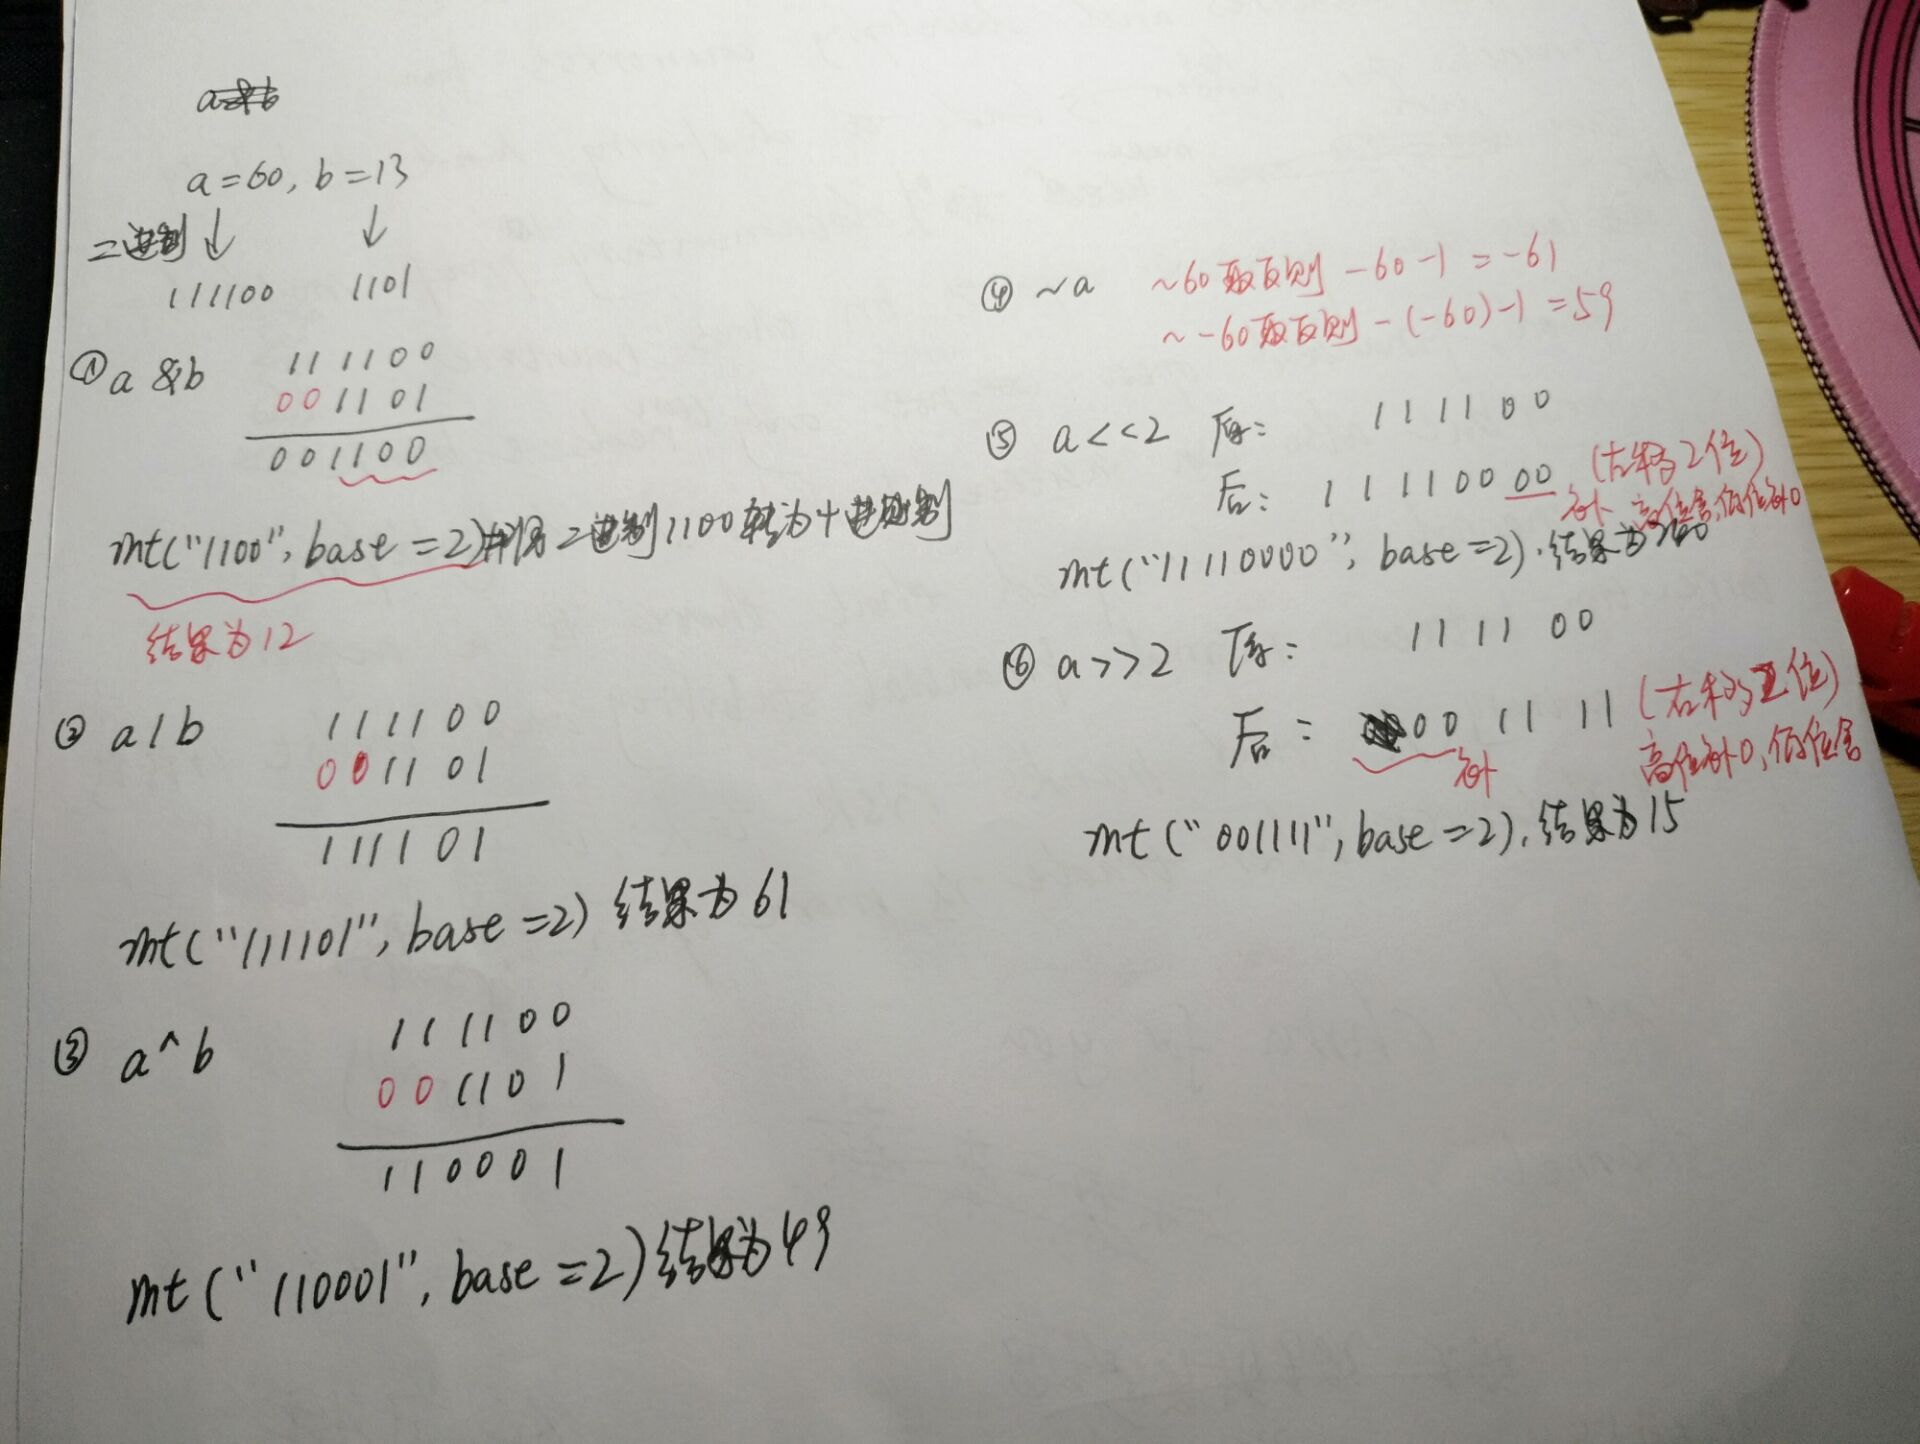 a=60, b=13
二进制 ↓ ↓
111100 1101
① a & b 111100
001101
001100
int("1100", base=2) 将二进制1100转为十进制
结果为12
② a | b 111100
001101
111101
int("111101", base=2) 结果为61
③ a ^ b 111100
001101
110001
int("110001", base=2) 结果为49
④ ~a ~60取反则 -60-1 = -61
~-60取反则 -(-60)-1 = 59
⑤ a<<2 原: 111100
后: 11110000 (左移2位)
补 高位舍,低位补0
int("11110000", base=2). 结果为240
⑥ a>>2 原: 111100
后: 001111 (右移2位)
补 高位补0,低位舍
int("001111", base=2). 结果为15